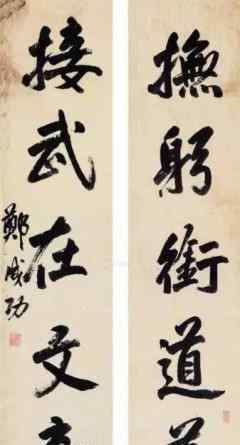 撫躬銜道
接武在文
鄭成功